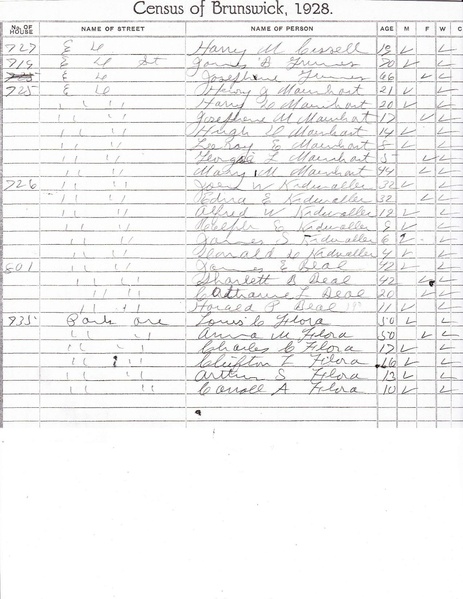 Census of Brunswick, 1928.
No. OF HOUSE NAME OF STREET NAME OF PERSON AGE M F W C
727 E " Harry M Cissell 18 ✓ ✓
719 E " St James B Grimes 70 ✓ ✓
E " Josephine Grimes 66 ✓ ✓
725 E " J Mainhart 21 ✓ ✓
" " Harry Mainhart 20 ✓ ✓
" " Josephene M Mainhart 17 ✓ ✓
" " Hugh Mainhart 14 ✓ ✓
" " LeRoy E Mainhart 8 ✓ ✓
" " George L Mainhart 5 ✓ ✓
" " Mary M Mainhart 44 ✓ ✓
726 " " W Kidwaller 32 ✓ ✓
" " Edna E Kidwaller 32 ✓ ✓
" " Alfred W Kidwaller 12 ✓ ✓
" " Ralph E Kidwaller 8 ✓ ✓
" " James S Kidwaller 6 ✓ ✓
" " Donald Kidwaller 4 ✓ ✓
801 " " James E Deal 42 ✓ ✓
" " Sharlett B Deal 42 ✓ ✓
" " Catharine L Deal 20 ✓ ✓
" " Harald P Deal 11 ✓ ✓
935 Park ave Louis C Flora 50 ✓ ✓
" " Anna M Flora 50 ✓ ✓
" " Charles C Flora 17 ✓ ✓
" " Clifton F Flora 16 ✓ ✓
" " Arthur S Flora 13 ✓ ✓
" " Carroll A Flora 10 ✓ ✓